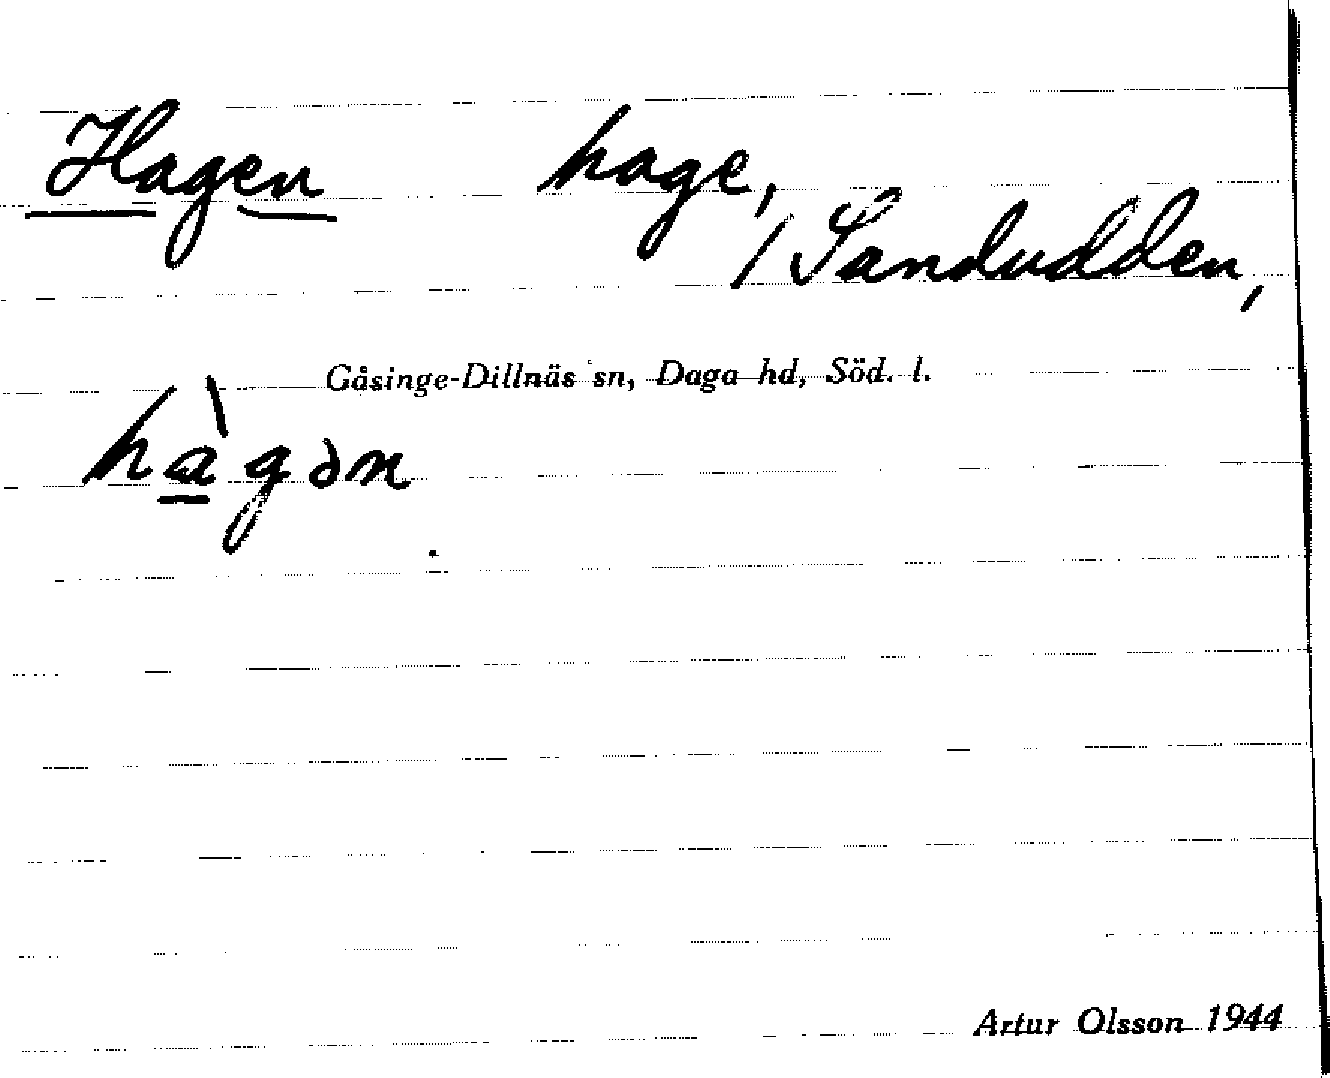 Hagen hage,
/ Sandudden,
Gåsinge-Dillnäs sn, Daga hd, Söd. l.
hàgən
Artur Olsson 1944